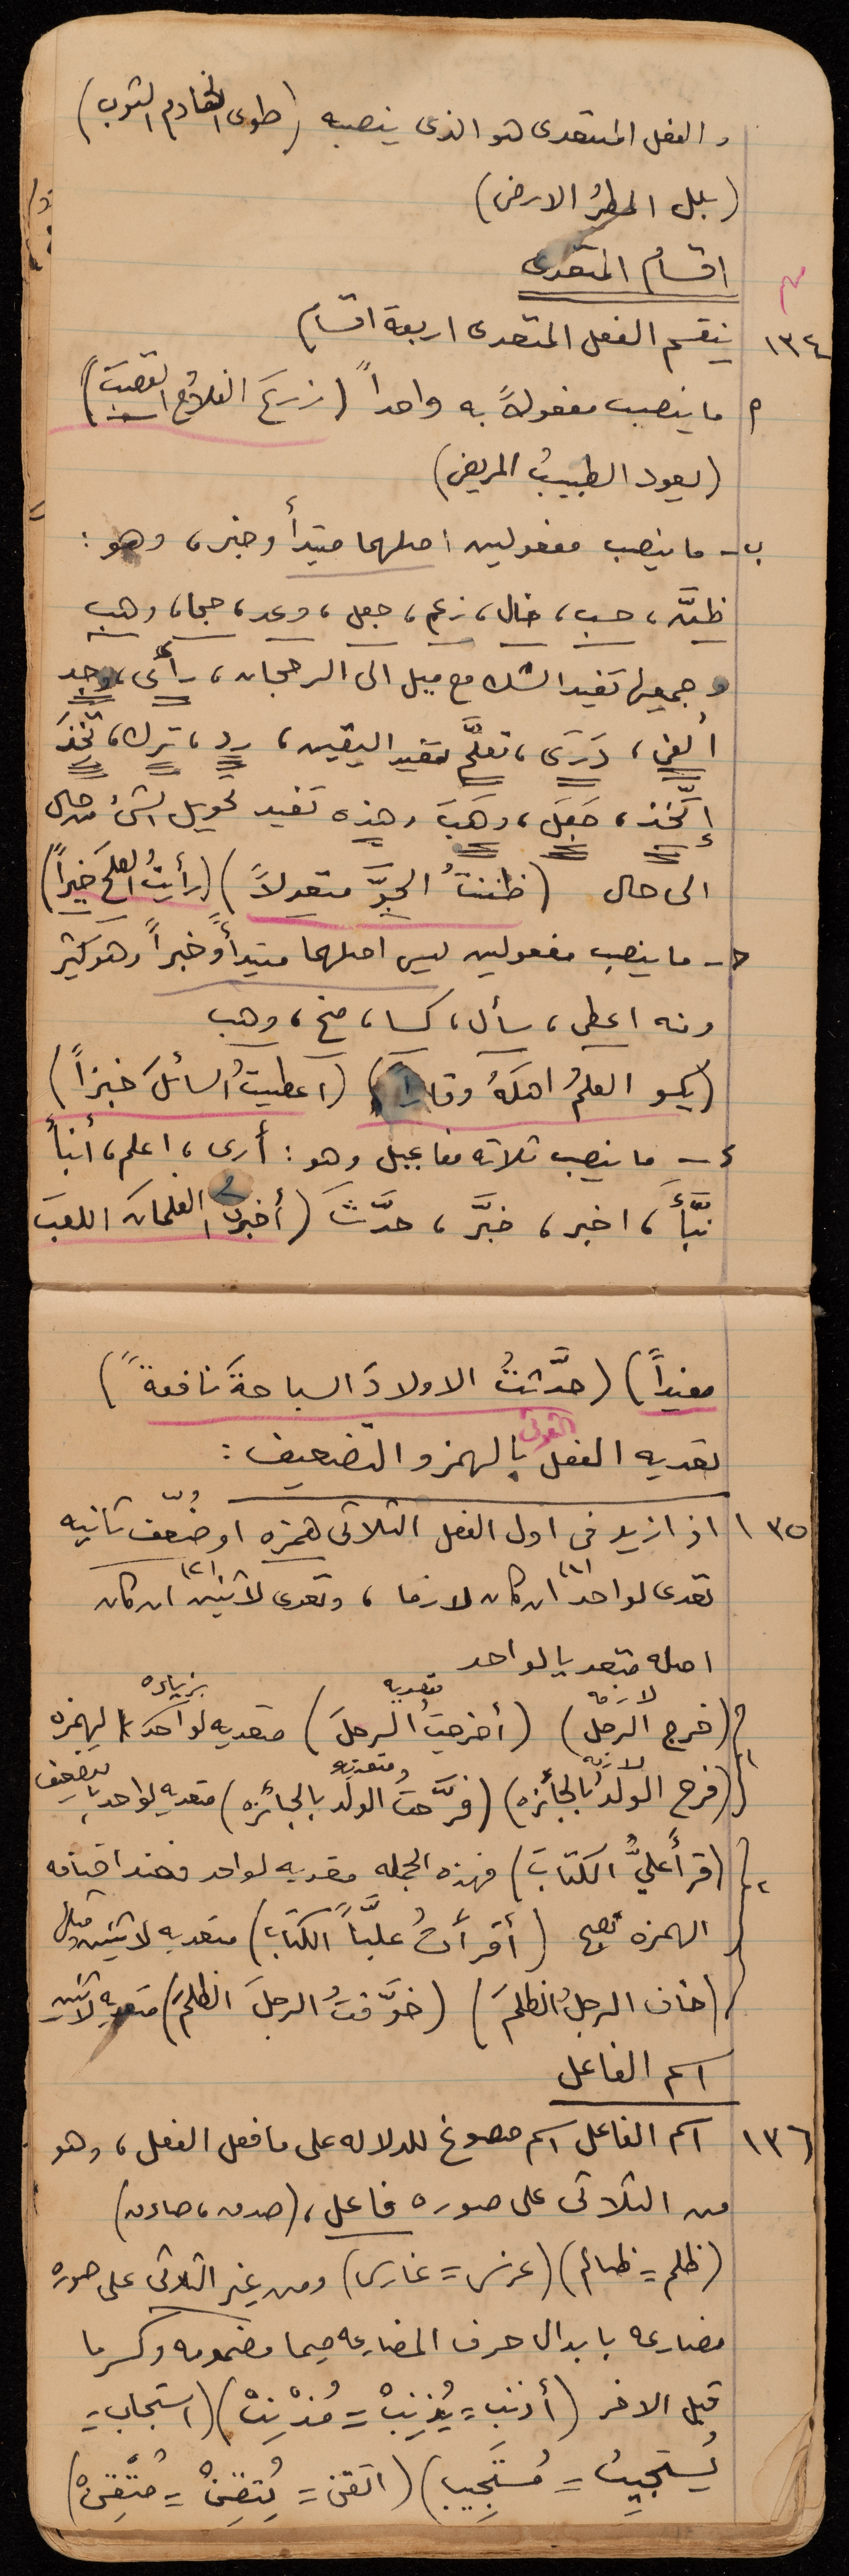 والفعل المتعدى هو الذى ينصبه (طوى الخادم الثوب)
(بلل المطرُ الارض)
اقسام المتعدى
١٣٤ ينقسم الفعل المتعدى اربعة اقسام
م ما ينصب مفعولاً به واحداً (زرعَ الفلاحُ القصبَ)
(يعود الطبيبُ المريض)
ب- ما ينصب مفعولين اصلهما مبتدأ وخبر، وهو:
ظنَّ، حسب، خال، زعم، جعل، وعد، حجا، وهب
وجميعها تفيد الشك مع ميل الى الرجحان، رأى، وجد
ألفى، دَرَى، تعلَّم تفيد اليقين، رد، ترك، تَّخذَ
إتَّخذ، جَعَلَ، وهَبَ وهذه تفيد تحويل الشئ من حال
الى حال (ظننتُ الجوَّ معتدلاً) (رأيتُ العلمَ خيراً)
ح- ما ينصب مفعولين ليس اصلهما مبتدأً وخبراً وهو كثير
ومنه اعطى، سأل، كسا، منح، وهب
(يكسو العلمُ اهلَهُ وقاراً) (اعطيتُ السائلَ خبزاً)
د- ما ينصب ثلاثه مفاعيل وهو: أرى، اعلم، أنبأ
نبَّأَ، اخبر، خبَّر، حدَّثَ (أخبرتُ الغلمانَ اللعبَ
مفيداً) (حدَّثتُ الاولادَ السباحةَ نافعةً)
تعديه الفعل الثلاثى بالهمز والتضعيف:
١٣٥ اذا زيد فى اول الفعل الثلاثى همزه او ضُعّف ثانيه
تعدى لواحد (١) ان كان لازما، وتعدى لاثنين (٢) ان كان
اصله متعديا لواحد
لازمه متعديه بزياده
(خرج الرجل) (أخرجتُ الرجلَ) متعديه لواحد الهمزه
لازمه ومتعديه
١ (فرح الولدُ بالجائزه) (فرَّحتُ الولد بالجائزه) متعديه لواحد بالتضعيف
٢ (قرأ عليُّ الكتابَ) فهذه الجمله متعديه لواحد فعند اضافه
الهمزه تصبح (أقرأتُ عليَّاً الكتاب) متعديه لاثنين ومثال
(خاف الرجلُ الظلمَ) (خوَّفتُ الرجلَ الظلمَ) متعديه لاثنين
اسم الفاعل
١٣٦ اسم الفاعل اسم مصوغ للدلاله على ما فعل الفعل، وهو
من الثلاثى على صوره فاعل، (صدق، صادق)
(ظلم = ظالم) (غرس = غارس) ومن غير الثلاثى على صوره
مضارعه بابدال حرف المضارعه ميما مضمومه وكسر ما
قبل الاخر (أذنب = يُذنِبْ = مُذْنِبْ) (استجاب =
يُستجيبُ = مُستَجِيب) (اتقن = يُتقِنْ = مُتْقِنْ)